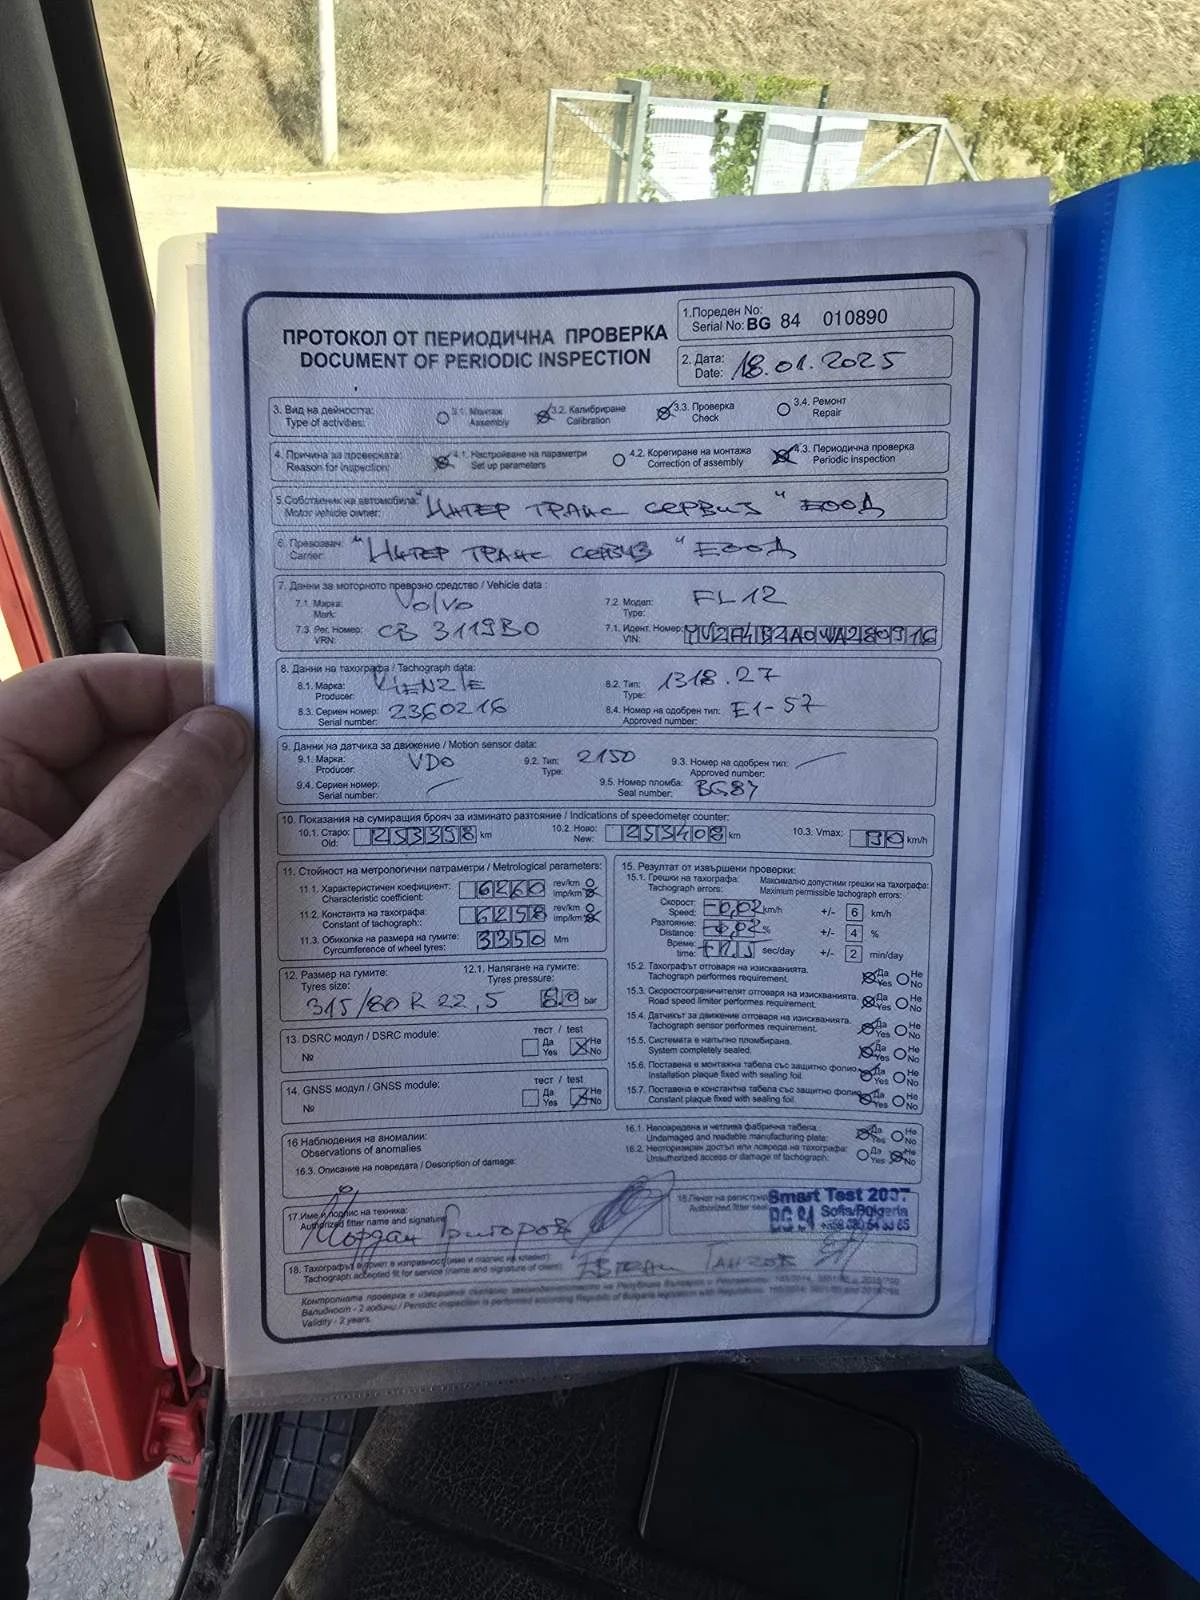 1.Пореден No:
Serial No: BG 84 010890
ПРОТОКОЛ ОТ ПЕРИОДИЧНА ПРОВЕРКА
DOCUMENT OF PERIODIC INSPECTION
2. Дата:
Date: 18.01.2025
3. Вид на дейността: 3.1. Монтаж 3.2. Калибриране 3.3. Проверка 3.4. Ремонт
Type of activities: Assembly Calibration Check Repair
4. Причина за проверката: 4.1. Настройване на параметри 4.2. Корегиране на монтажа 4.3. Периодична проверка
Reason for inspection: Set up parameters Correction of assembly Periodic inspection
5.Собственик на автомобила: "ИНТЕР ТРАНС СЕРВИЗ" ЕООД
Motor vehicle owner:
6. Превозвач: "ИНТЕР ТРАНС СЕРВИЗ" ЕООД
Carrier:
7. Данни за моторното превозно средство / Vehicle data :
7.1. Марка: Volvo 7.2. Модел: FL12
Mark: Type:
7.3. Рег. Номер: CB 3119BO 7.1. Идент. Номер:
VRN: VIN:
8. Данни на тахографа / Tachograph data:
8.1. Марка: KIENZLE 8.2. Тип: 1318.27
Producer: Type:
8.3. Сериен номер: 2360216 8.4. Номер на одобрен тип: E1-57
Serial number: Approved number:
9. Данни на датчика за движение / Motion sensor data:
9.1. Марка: VDO 9.2. Тип: 2150 9.3. Номер на одобрен тип:
Producer: Type: Approved number:
9.4. Сериен номер: 9.5. Номер пломба: BG84
Serial number: Seal number:
10. Показания на сумиращия брояч за изминато разтояние / Indications of speedometer counter:
10.1. Старо: 253358 km 10.2. Ново: 253408 km 10.3. Vmax: 90 km/h
Old: New:
11. Стойност на метрологични патраметри / Metrological parameters:
11.1. Характеристичен коефициент: 6260 rev/km
Characteristic coefficient: imp/km
11.2. Константа на тахографа: 6258 rev/km
Constant of tachograph: imp/km
11.3. Обиколка на размера на гумите: 3350 Mm
Cyrcumference of wheel tyres:
12. Размер на гумите: 12.1. Налягане на гумите:
Tyres size: Tyres pressure:
315/80 R 22,5 8.0 bar
13. DSRC модул / DSRC module: тест / test
№ Да Yes Не No
14. GNSS модул / GNSS module: тест / test
№ Да Yes Не No
15. Резултат от извършени проверки:
15.1. Грешки на тахографа: Максимално допустими грешки на тахографа:
Tachograph errors: Maximum permissible tachograph errors:
Скорост: -0,02 km/h +/- 6 km/h
Speed:
Разтояние: -0,02 % +/- 4 %
Distance:
Време: sec/day +/- 2 min/day
time:
15.2. Тахографът отговаря на изискванията. Да Не
Tachograph performes requirement. Yes No
15.3. Скоростоограничителят отговаря на изискванията. Да Не
Road speed limiter performes requirement. Yes No
15.4. Датчикът за движение отговаря на изискванията. Да Не
Tachograph sensor performes requirement. Yes No
15.5. Системата е напълно пломбирана. Да Не
System completely sealed. Yes No
15.6. Поставена е монтажна табела със защитно фолио Да Не
Installation plaque fixed with sealing foil. Yes No
15.7. Поставена е константна табела със защитно фолио Да Не
Constant plaque fixed with sealing foil. Yes No
16 Наблюдения на аномалии:
Observations of anomalies
16.1. Неповредена и четлива фабрична табела. Да Не
Undamaged and readable manufacturing plate: Yes No
16.2. Неоторизиран достъп или повреда на тахографа: Да Не
Unauthorized access or damage of tachograph: Yes No
16.3. Описание на повредата / Description of damage:
17.Име и подпис на техника: Йордан Григоров
Authorized fitter name and signature
Authorized fitter seal
Smart Test 2007
BG 84 Sofia/Bulgaria
18. Тахографът
Tachograph accepted fit for service (name and signature of client)
Валидност - 2 години / Periodic inspection is performed according Republic of Bulgaria legislation with Regulations:
Validity - 2 years.